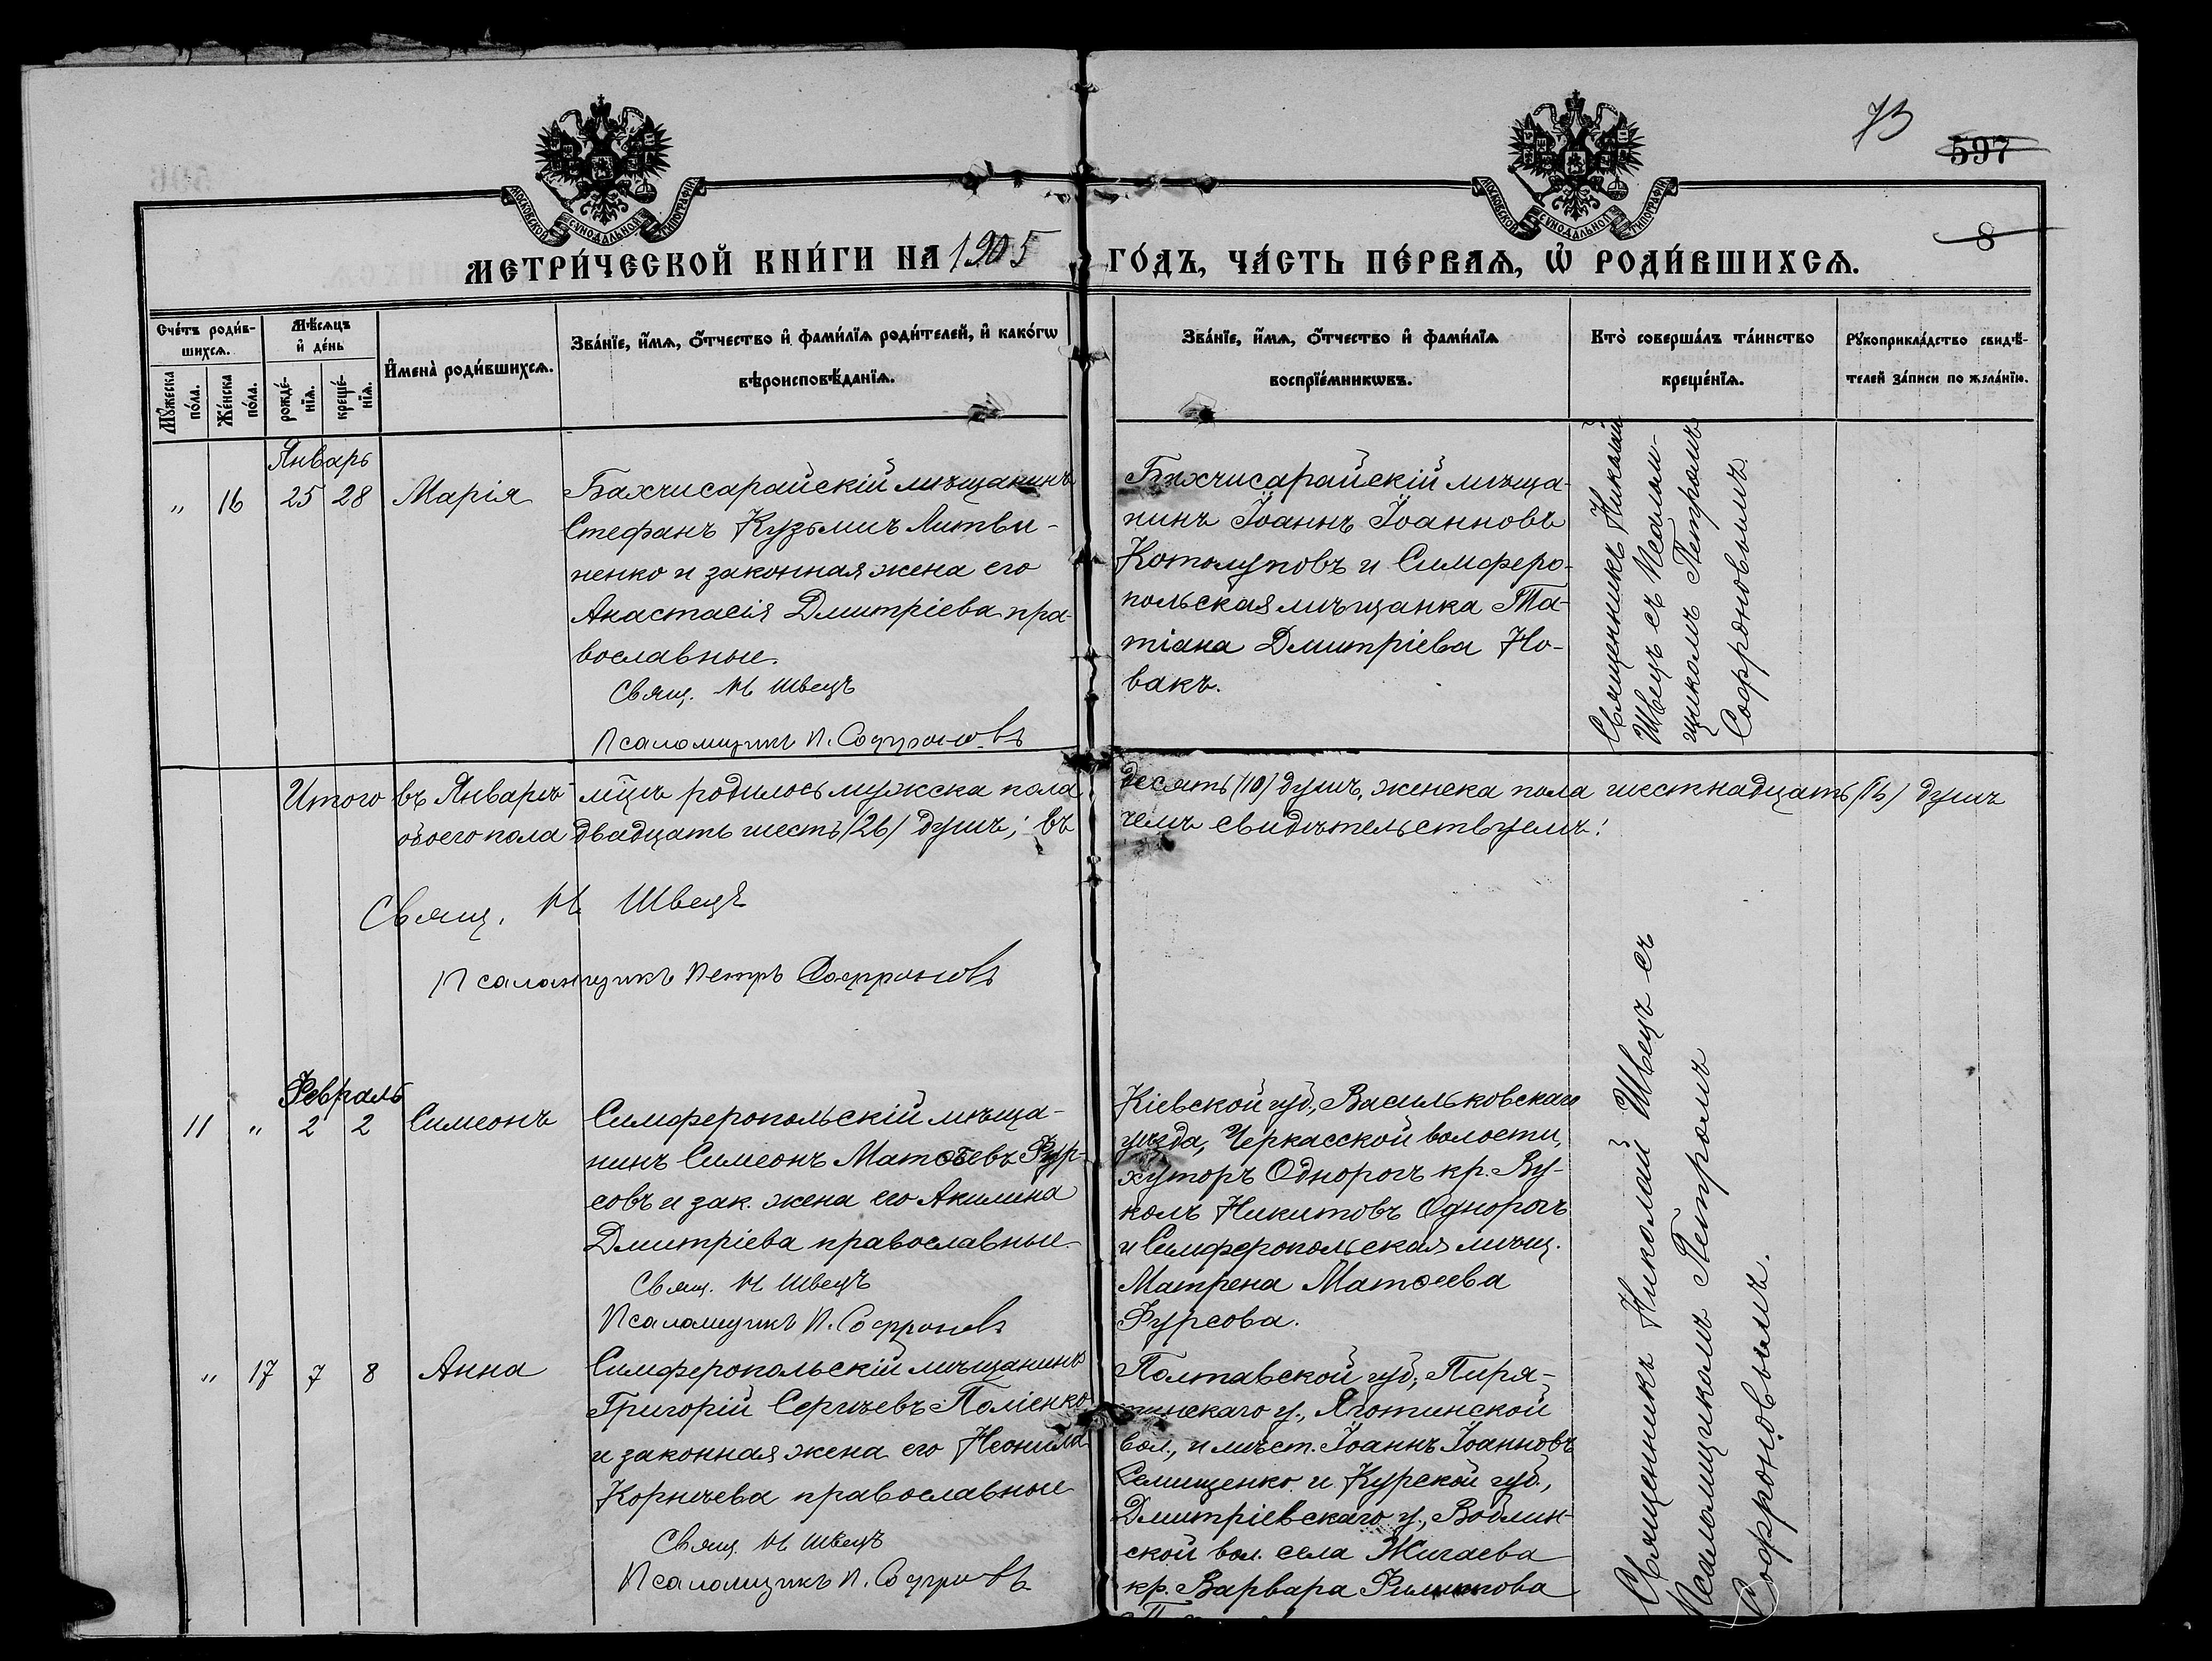 73
597
8
МОСКОВСКОЙ СѴНОДАЛЬНОЙ ТИПОГРАФІИ
МОСКОВСКОЙ СѴНОДАЛЬНОЙ ТИПОГРАФІИ
МЕТРИ́ЧЕСКОЙ КНИ́ГИ НА 1905 ГО́ДЪ, ЧА́СТЬ ПЕ́РВАѦ, Ѡ҆ РОДИ́ВШИХСѦ.
Сче́тъ роди́в-
шихсѧ.
Мꙋ́жеска по́ла.
Же́нска по́ла.
Мѣ́сѧцъ
и҆ де́нь
рожде́-
нїѧ.
креще́-
нїѧ.
И҆мена̀ роди́вшихсѧ.
Зва́нїе, и҆́мѧ, ѻ҆́тчество и҆ фами́лїѧ роди́телей, и҆ како́гѡ
вѣроисповѣ́данїѧ.
Зва́нїе, и҆́мѧ, ѻ҆́тчество и҆ фами́лїѧ
воспрїе́мникѡвъ.
Кто̀ соверша́лъ та́инство
креще́нїѧ.
Рꙋкоприкла́дство свидѣ́-
телей за́писи по жела́нїю.
Январь
" 16 25 28 Марія
Бахчисарайскій мѣщанинъ
Стефанъ Кузьмичъ Литви-
ненко и законная жена его
Анастасія Дмитріева пра-
вославные.
Свящ. Н Швецъ
Псаломщикъ П. Софроновъ
Бахчисарайскій мѣща-
нинъ Іоаннъ Іоанновъ
Котолуповъ и Симферо-
польская мѣщанка Та-
тіана Дмитріева Но-
вакъ.
Священникъ Николай
Швецъ съ Псалом-
щикомъ Петромъ
Софроновымъ.
Итого въ Январѣ мцѣ родилось мужска пола десять (10) душъ, женска пола шестнадцать (16) душъ
обоего пола двадцать шесть (26) душъ; въ чемъ свидѣтельствуемъ:
Свящ. Н Швецъ
Псаломщикъ Петръ Софроновъ
Февраль
11 " 2 2 Симеонъ
Симферопольскій мѣща-
нинъ Симеонъ Матѳеевъ Фур-
совъ и зак. жена его Акилина
Дмитріева православные.
Свящ. Н Швецъ
Псаломщикъ П. Софроновъ
Кіевской губ., Васильковскаго
уѣзда, Черкасской волости,
хуторъ Однорогъ кр. Ву-
колъ Никитовъ Однорогъ
и Симферопольская мѣщ.
Матрена Матѳеева
Фурсова.
" 17 7 8 Анна
Симферопольскій мѣщанинъ
Григорій Сергѣевъ Поліенко
и законная жена его Неонила
Корнѣева православные
Свящ. Н Швецъ
Псаломщикъ П. Софроновъ
Полтавской губ., Пиря-
тинскаго у., Яготинской
вол., и мѣст. Іоаннъ Іоанновъ
Семищенко и Курской губ.,
Дмитріевскаго у.,
ской вол. села Жигаева
кр. Варвара Филипова
Священникъ Николай Швецъ съ
Псаломщикомъ Петромъ
Софроновымъ.